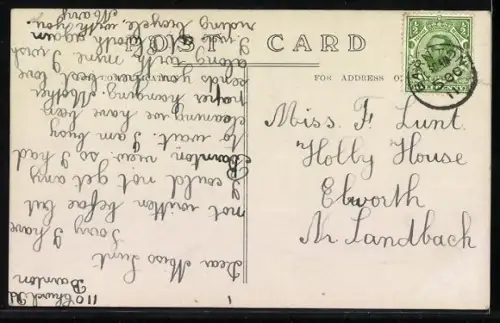 POST CARD
FOR ADDRESS O
Miss. F. Lunt.
Holly House
Elworth
Nr Landbach
110 Church Rd
Barnton
1
Dear Miss Lunt
Sorry I have
not written before but
I could not get any
Barnton view. so I had
to wait. I am busy
cleaning we have been
paper hanging. Mother
sends you her best love
along with mine I wish
I was at Elworth again
riding bicycle, with you.
Mary